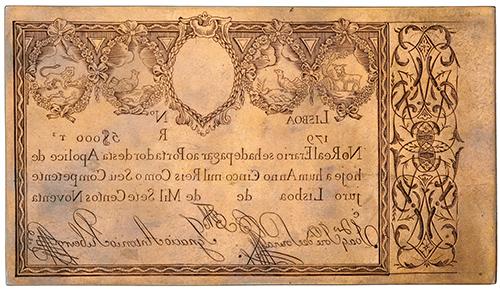 LISBOA
No
179
R 5$000 rs
No Real Erario se hade pagar ao Portador desta Apolice de
hoje a hum Anno Cinco mil Reis Com o Seu Competente
juro Lisboa de de Mil Sete Centos Noventa
Ignacio Antonio Ribeiro